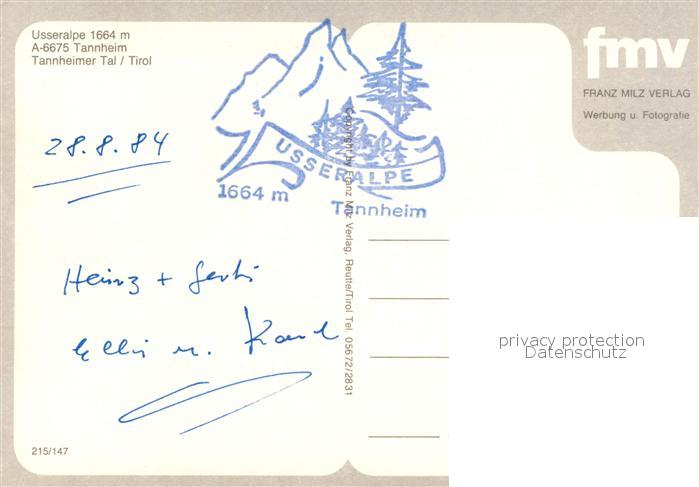 Usseralpe 1664 m
A-6675 Tannheim
Tannheimer Tal / Tirol
28.8.84
USSERALPE
1664 m
Tannheim
Heinz + Gerti
Elli u. Karl
215/147
Copyright by Franz Milz Verlag, Reutte/Tirol Tel. 05672/2831
fmv
FRANZ MILZ VERLAG
Werbung u. Fotografie
privacy protection
Datenschutz